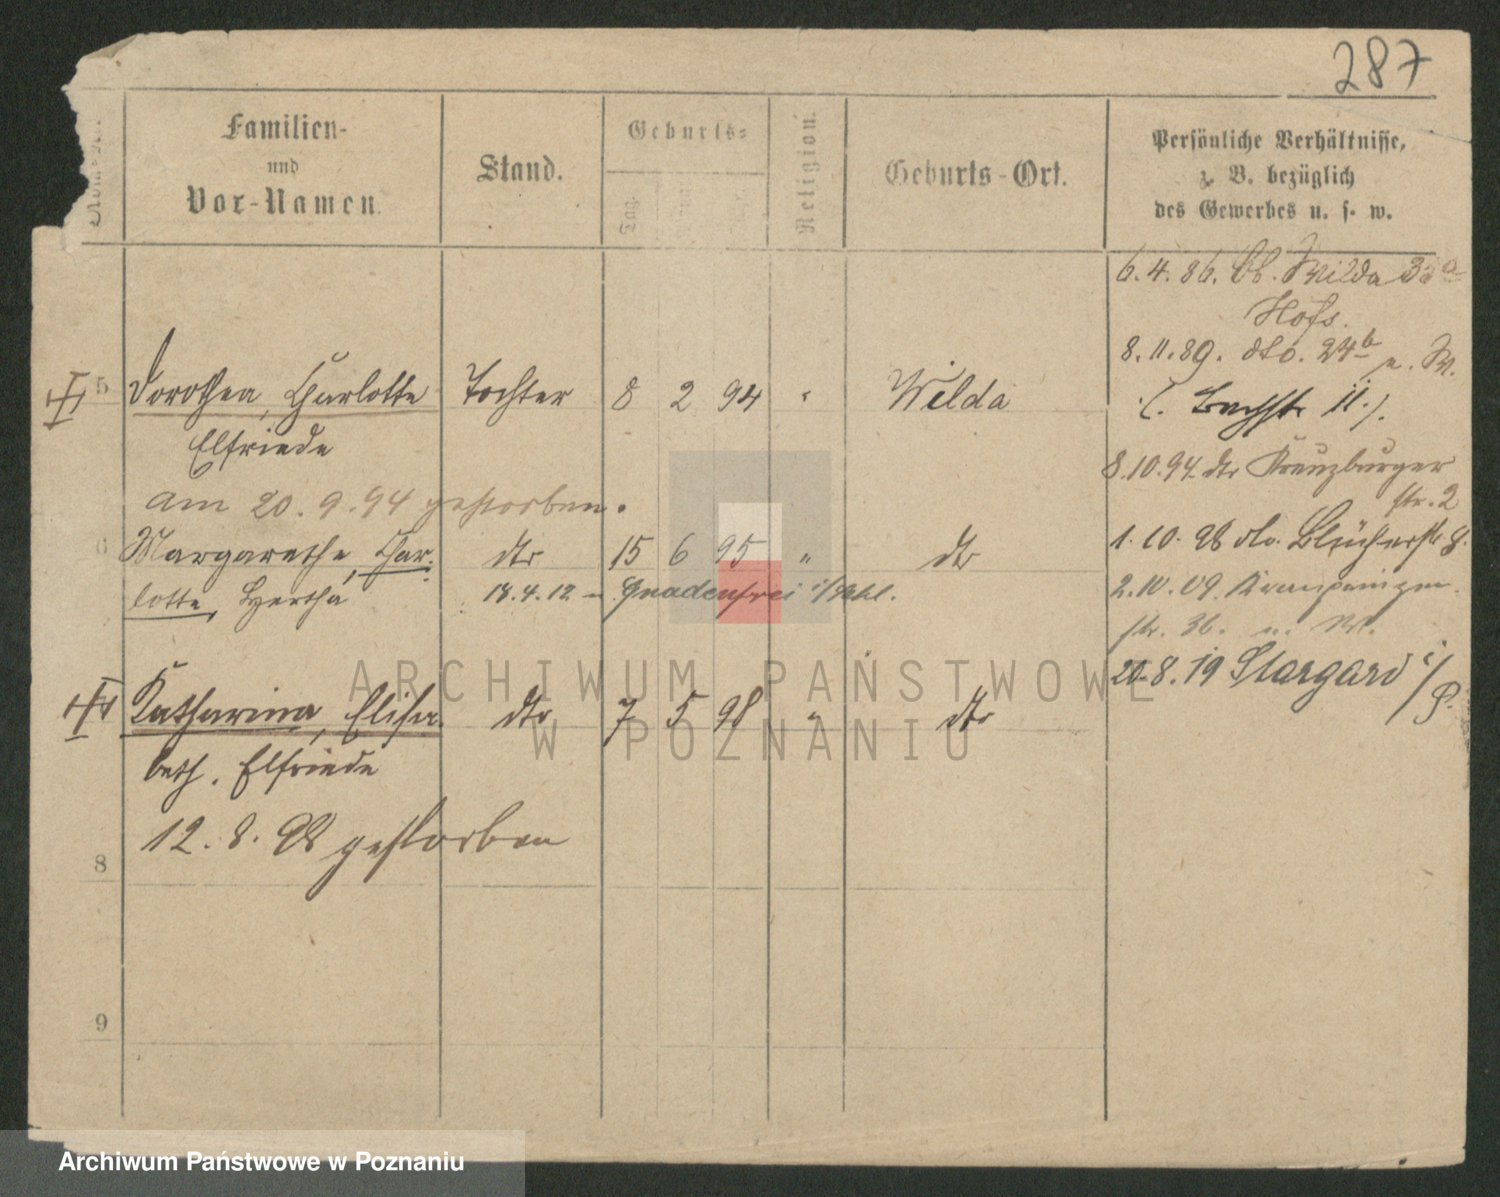 287
Familien-
und
Vor-Namen.
Stand.
Geburts-
Tag.
Religion.
Geburts-Ort.
Persönliche Verhältnisse,
z. B. bezüglich
des Gewerbes u. s. w.
6.4.86. Ob. Wilda 33a
Hofs.
8.11.89. dto. 24b u. W.
5 Dorothea, Charlotte Tochter 8 2 94 " Wilda
Elfriede
8.10.94. dto Kreuzburger
str. 2
am 20.9.94 gestorben.
6 Margarethe, Char- dto 15 6 95 " dto
1.10.98 dto. Blücherstr 8.
lotte, Hertha 18.4.12 – Gnadenfrei i/Schl.
2.10.09.
str. 36. u. W.
20.8.19 Stargard i/P.
Katharina, Elisa- dto 7 5 98 " dto
beth, Elfriede
12.8.98 gestorben
8
9
ARCHIWUM PAŃSTWOWE
W POZNANIU
Archiwum Państwowe w Poznaniu